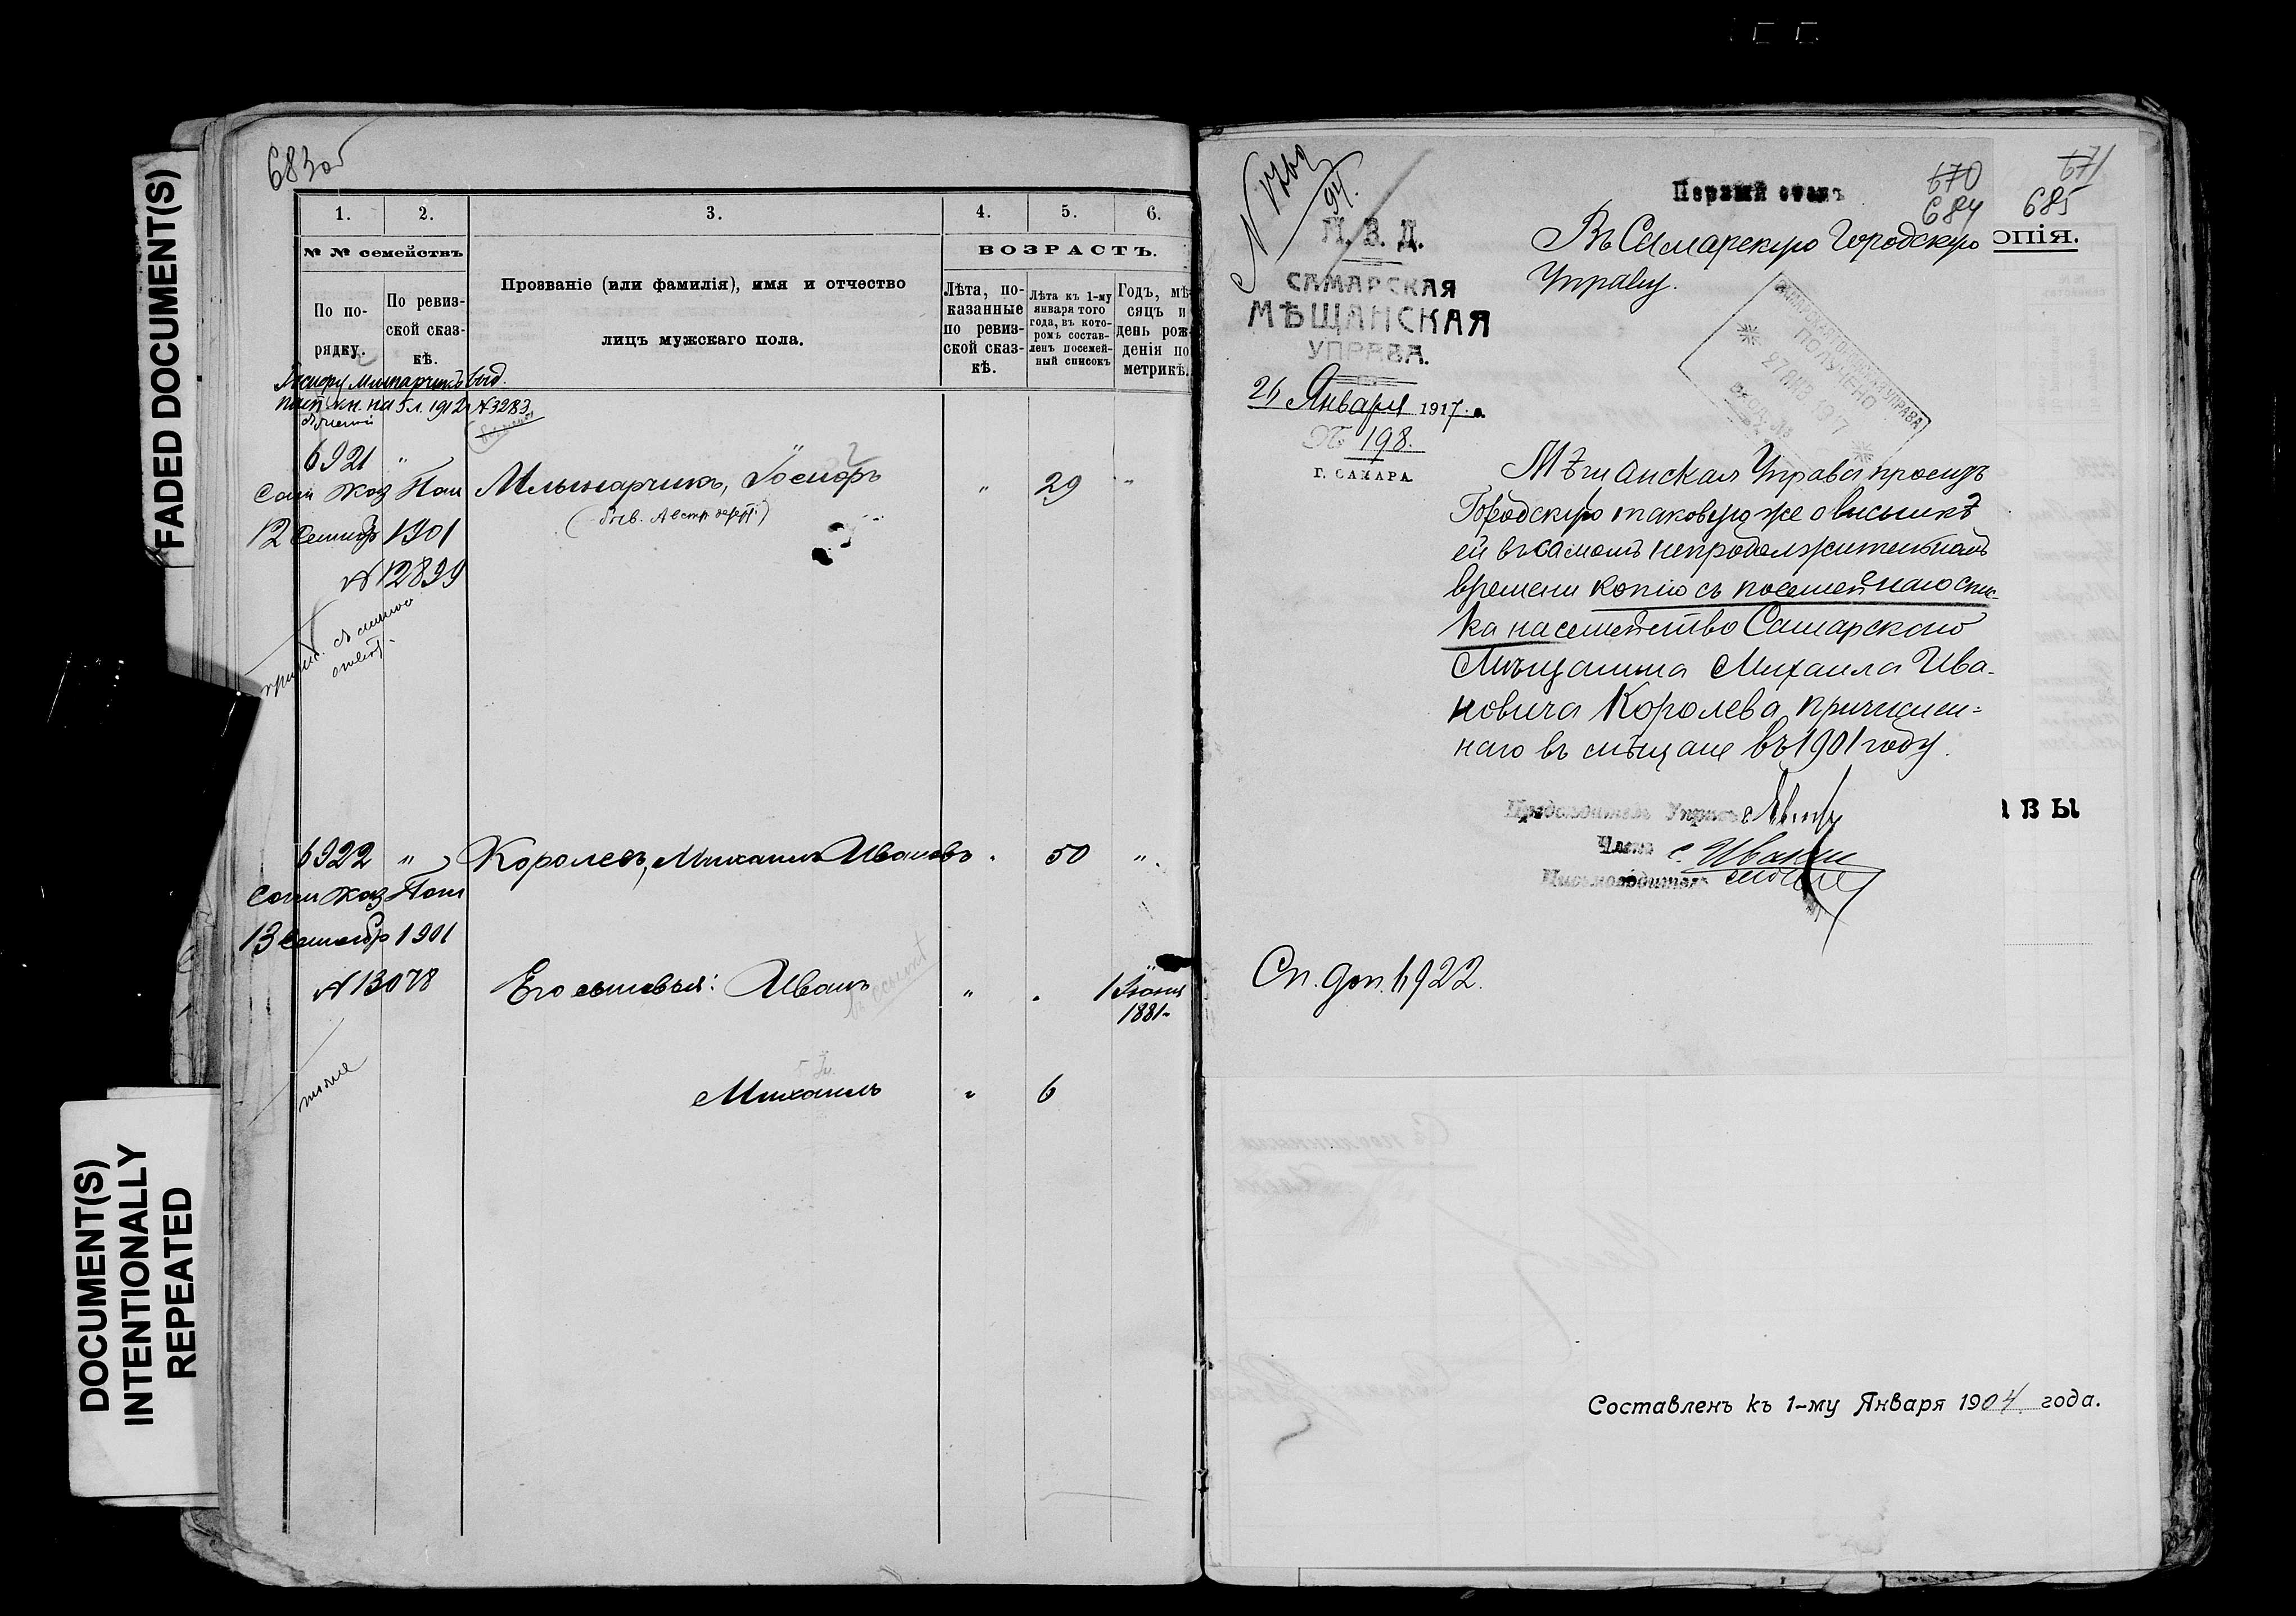 FADED DOCUMENT(S)
DOCUMENT(S)
INTENTIONALLY
REPEATED
683об
1. 2. 3. 4. 5. 6.
№ № семействъ
По по-
рядку.
По ревиз-
ской сказ-
кѣ.
Прозваніе (или фамилія), имя и отчество
лицъ мужскаго пола.
ВОЗРАСТЪ.
Лѣта, по-
казанные
по ревиз-
ской сказ-
кѣ.
Лѣта къ 1-му
января того
года, въ кото-
ромъ состав-
ленъ посемей-
ный списокъ
Годъ, мѣ-
сяцъ и
день рож-
денія по
метрикѣ.
кн. на 5 л. 1912 г. №3283
6921 "
Каз Пал Мельнарчикъ, " 29 "
(быв. Австр.
12 Сентябр 1901
№ 12899
6922 " Королевъ, Михаилъ Ивановъ " 50 "
Каз Пал
13 Сентябр 1901
№ 13078 Его сыновья: Иванъ " " 1 Іюня
1881
Михаилъ " 6
670
684
671
685
Первый столъ
М. В. Д.
САМАРСКАЯ
МѢЩАНСКАЯ
УПРАВА.
26 Января 1917 г.
№ 198.
Г. САМАРА.
Въ Самарскую Городскую
Управу.
опія.
САМАРСКАЯ ГОРОДСКАЯ УПРАВА
ПОЛУЧЕНО
27 ЯНВ 1917
ВХОД. №
Мѣщанская Управа проситъ
Городскую таковую же о высылкѣ
ей въ самомъ непродолжительномъ
времени копію съ посемейнаго спис-
ка на семейство Самарскаго
Мѣщанина Михаила Ива-
новича Королева, причислен-
наго въ мѣщане въ 1901 году.
Предсѣдатель Управы
Членъ
Письмоводитель
вы
Сп. доп. 6922.
Составленъ къ 1-му Января 1904 года.